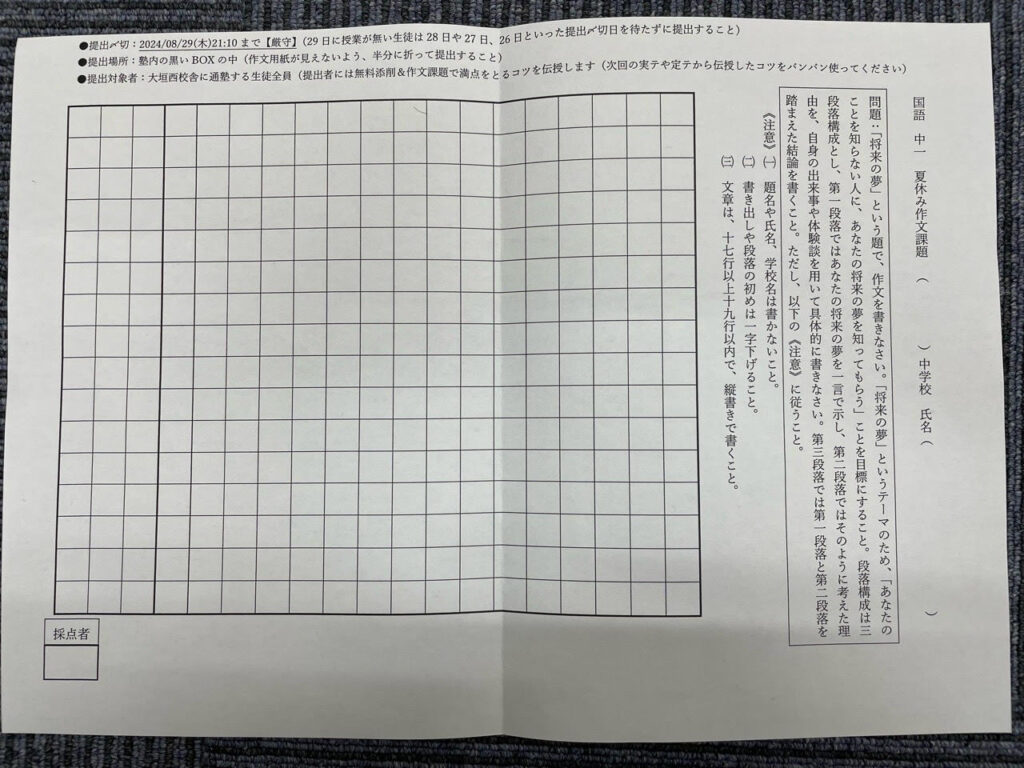 ●提出〆切：2024/08/29(木)21:10 まで【厳守】(29 日に授業が無い生徒は 28 日や 27 日、26 日といった提出〆切日を待たずに提出すること)
●提出場所：塾内の黒い BOX の中（作文用紙が見えないよう、半分に折って提出すること）
●提出対象者：大垣西校舎に通塾する生徒全員（提出者には無料添削＆作文課題で満点をとるコツを伝授します（次回の実テや定テから伝授したコツをバンバン使ってください）
国語　中一　夏休み作文課題　（　　　　）中学校　氏名（　　　　　　　　）
問題：「将来の夢」という題で、作文を書きなさい。「将来の夢」というテーマのため、「あなたの
ことを知らない人に、あなたの将来の夢を知ってもらう」ことを目標にすること。段落構成は三
段落構成とし、第一段落ではあなたの将来の夢を一言で示し、第二段落ではそのように考えた理
由を、自身の出来事や体験談を用いて具体的に書きなさい。第三段落では第一段落と第二段落を
踏まえた結論を書くこと。ただし、以下の《注意》に従うこと。
《注意》㈠　題名や氏名、学校名は書かないこと。
㈡　書き出しや段落の初めは一字下げること。
㈢　文章は、十七行以上十九行以内で、縦書きで書くこと。
採点者